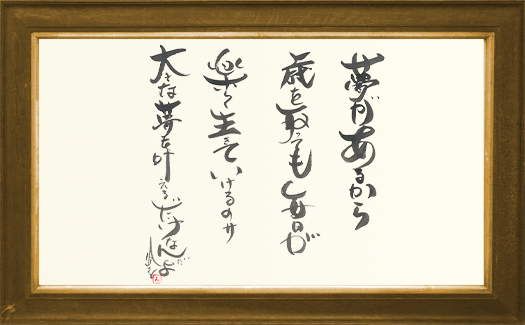 夢があるから
歳を取っても毎日が
楽しく生きていけるのサ
大きな夢を叶えるだけなんだよ